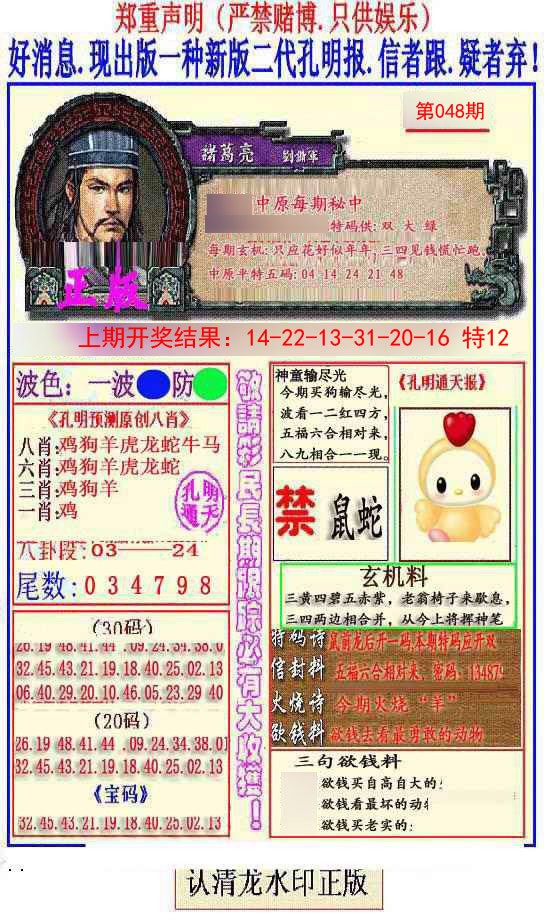 郑重声明（严禁赌博.只供娱乐）
好消息.现出版一种新版二代孔明报.信者跟.疑者弃!
第048期
諸葛亮 劉鐤軍
中原每期秘中
特码供:双 大 绿
每期玄机:只应花好似年年,三四见钱慌忙跑
中原平特五码:04 14 24 21 48
正版
上期开奖结果：14-22-13-31-20-16 特12
波色：一波 防
《孔明预测原创八肖》
八肖:鸡狗羊虎龙蛇牛马
六肖:鸡狗羊虎龙蛇
三肖:鸡狗羊
一肖:鸡
孔明
通天
八卦段:03——24
尾数:034798
(30码)
26.19 48.41.44 .09.24.34.38.0
32.45.43.21.19.18.40.25.02.13
06.40.29.20.10.46.05.23.29 40
(20码)
26.19 48.41.44 .09.24.34.38.01
32.45.43.21.19.18.40.25.02.13
《宝码》
32.45.43.21.19.18.40.25.02.13
敬請彩民長期跟踪必有大收獲！
神童输尽光
今期买狗输尽光，
波看一二红四方，
五福六合相对来，
八九相合一一现。
《孔明通天报》
禁
鼠蛇
玄机料
三黄四碧五赤紫，老翁椅子来歇息，
三四两边相合并，从今上将挥神笔
特码诗 鼠前龙后开一码,本期特码应开双
信封料 五福六合相对来，密码：13487
火烧诗 今期火烧“羊”
欲钱料 欲钱去看最勇敢的动物
三句欲钱料
欲钱买自高自大的:
欲钱看最坏的动
欲钱买老实的:
认清龙水印正版